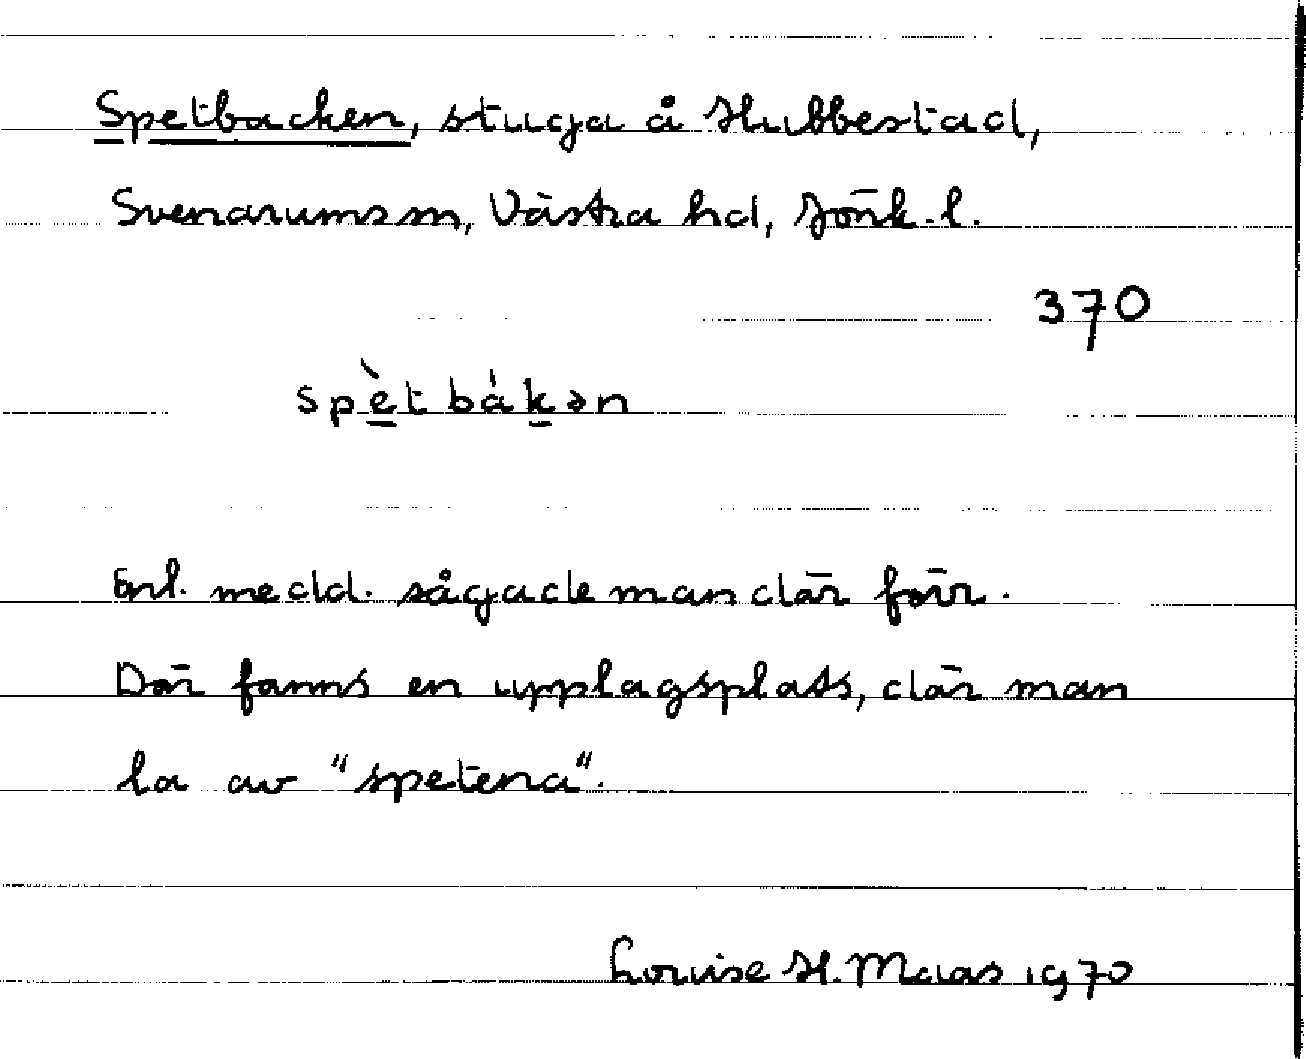 Spetbacken, stuga å Hubbestad,
Svenarums sn, Västra hd, Jönk. l.
370
spètbákən
Enl. medd. sågade man där förr.
Där fanns en upplagsplats, där man
la av "spetena".
Louise H. Maas 1970